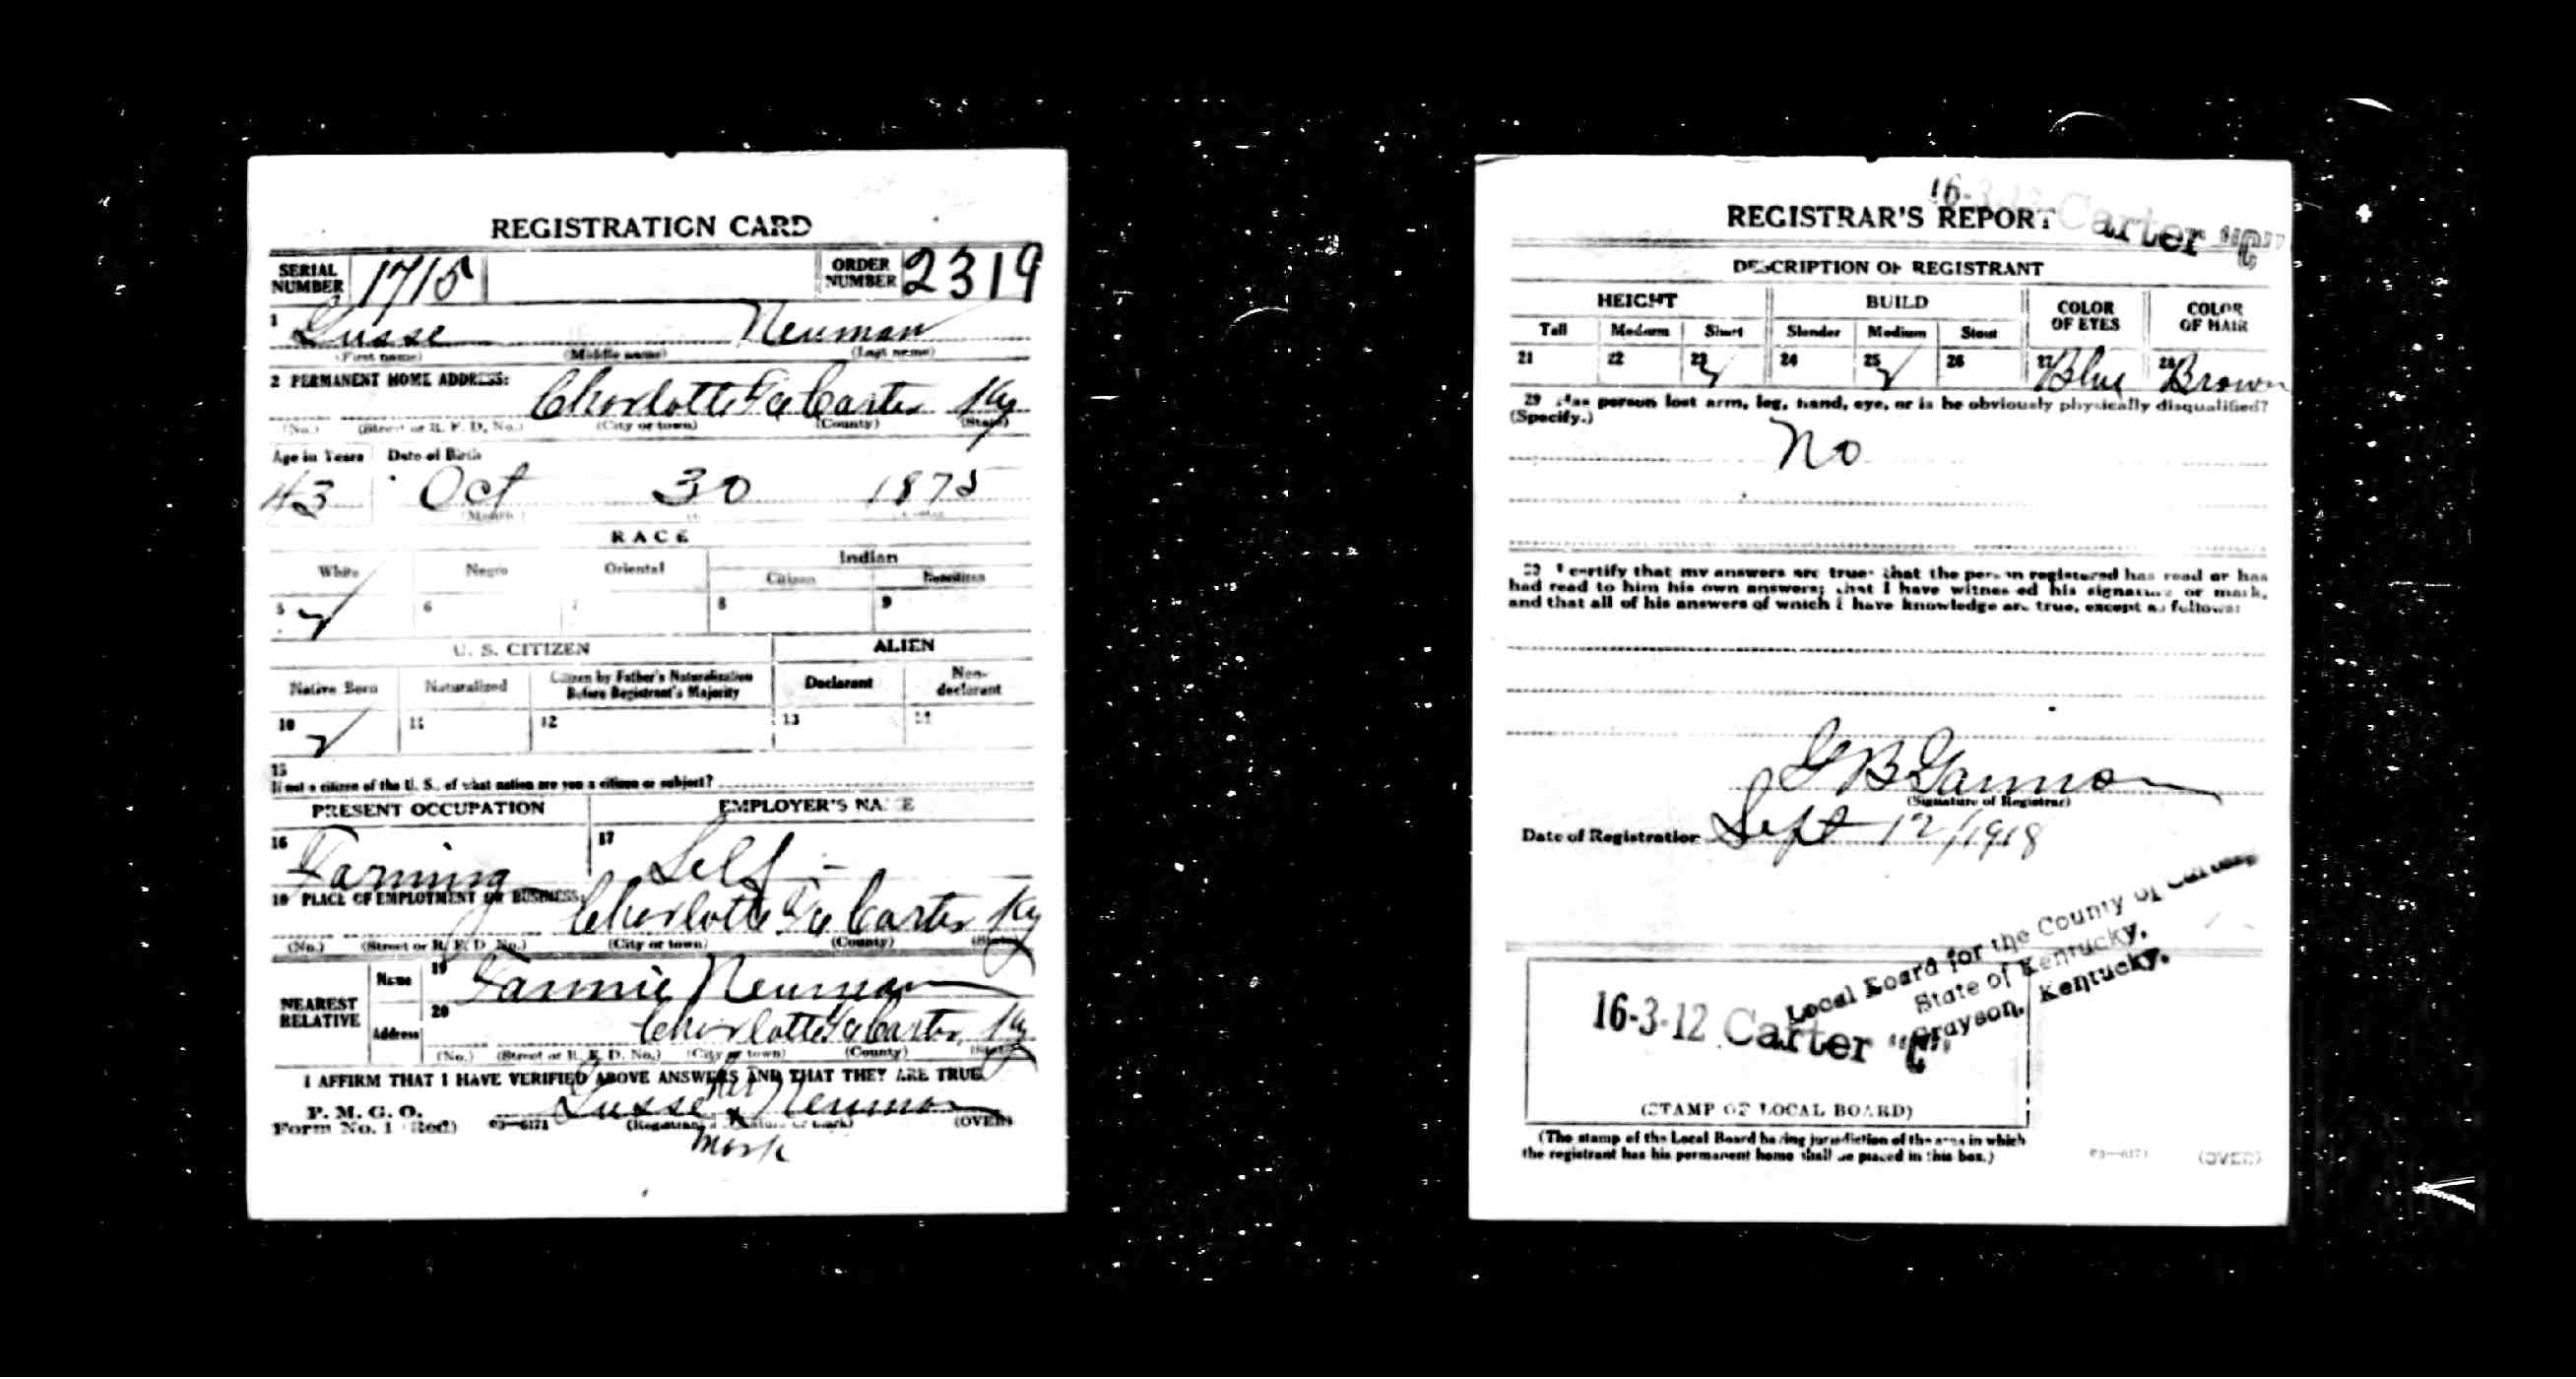 REGISTRATION CARD
SERIAL NUMBER 1715 ORDER NUMBER 2319
1 Lusse Neuman
(First name) (Middle name) (Last name)
2 PERMANENT HOME ADDRESS: Charlotte Carter Ky
(No.) (Street or R. F. D. No.) (City or town) (County) (State)
Age in Years Date of Birth
43 Oct 30 1875
(Month)
RACE
White Negro Oriental Indian
Citizen Noncitizen
5 ✓ 6 7 8 9
U. S. CITIZEN ALIEN
Native Born Naturalized Citizen by Father's Naturalization Before Registrant's Majority Declarant Non-declarant
10 ✓ 11 12 13 14
15
If not a citizen of the U. S., of what nation are you a citizen or subject?
PRESENT OCCUPATION EMPLOYER'S NAME
16 Farming 17 Self -
18 PLACE OF EMPLOYMENT OR BUSINESS: Charlotte Carter Ky
(No.) (Street or R. F. D. No.) (City or town) (County) (State)
NEAREST RELATIVE
Name 19 Fannie Neuman
Address 20 Charlotte Carter Ky
(No.) (Street or R. F. D. No.) (City or town) (County) (State)
I AFFIRM THAT I HAVE VERIFIED ABOVE ANSWERS AND THAT THEY ARE TRUE
P. M. G. O.
Form No. 1 (Red) 03—6171 Lusse x Neuman
(Registrant's signature or mark) (OVER)
mark
16-3-12 Carter "C"
REGISTRAR'S REPORT
DESCRIPTION OF REGISTRANT
HEIGHT BUILD COLOR OF EYES COLOR OF HAIR
Tall Medium Short Slender Medium Stout
21 22 23 ✓ 24 25 ✓ 26 27 Blue 28 Brown
29 Has person lost arm, leg, hand, eye, or is he obviously physically disqualified?
(Specify.)
No
30 I certify that my answers are true; that the person registered has read or has
had read to him his own answers; that I have witnessed his signature or mark,
and that all of his answers of which I have knowledge are true, except as follows:
(Signature of Registrar)
Date of Registration Sept 12/1918
Local Board for the County of Carter,
State of Kentucky,
Grayson, Kentucky.
16-3-12 Carter "C"
(STAMP OF LOCAL BOARD)
(The stamp of the Local Board having jurisdiction of the area in which
the registrant has his permanent home shall be placed in this box.)
03—6171 (OVER)